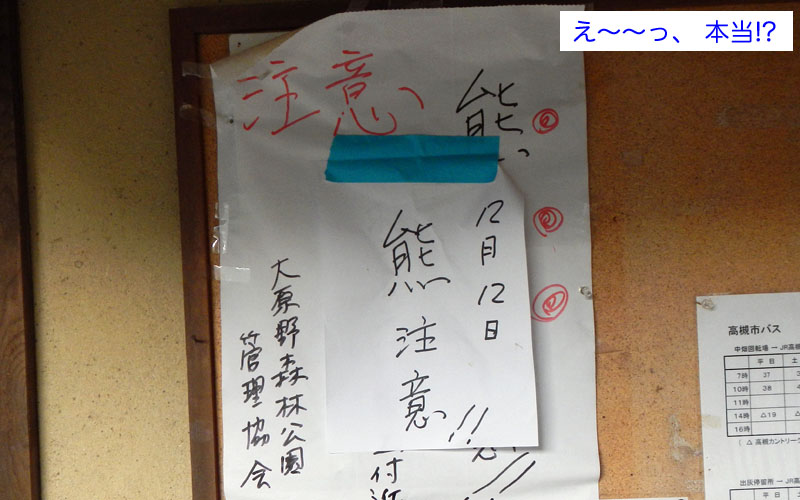 え～～っ、 本当!?
注意
熊
12月12日
熊注意
!!
付近
大原野森林公園
管理協会
高槻市バス
中畑回転場 → JR高槻
平日 土
7時 37 3
10時 38
11時
14時 △19 △5
16時
( △ 高槻カントリーク
出灰停留所 → JR高
平日